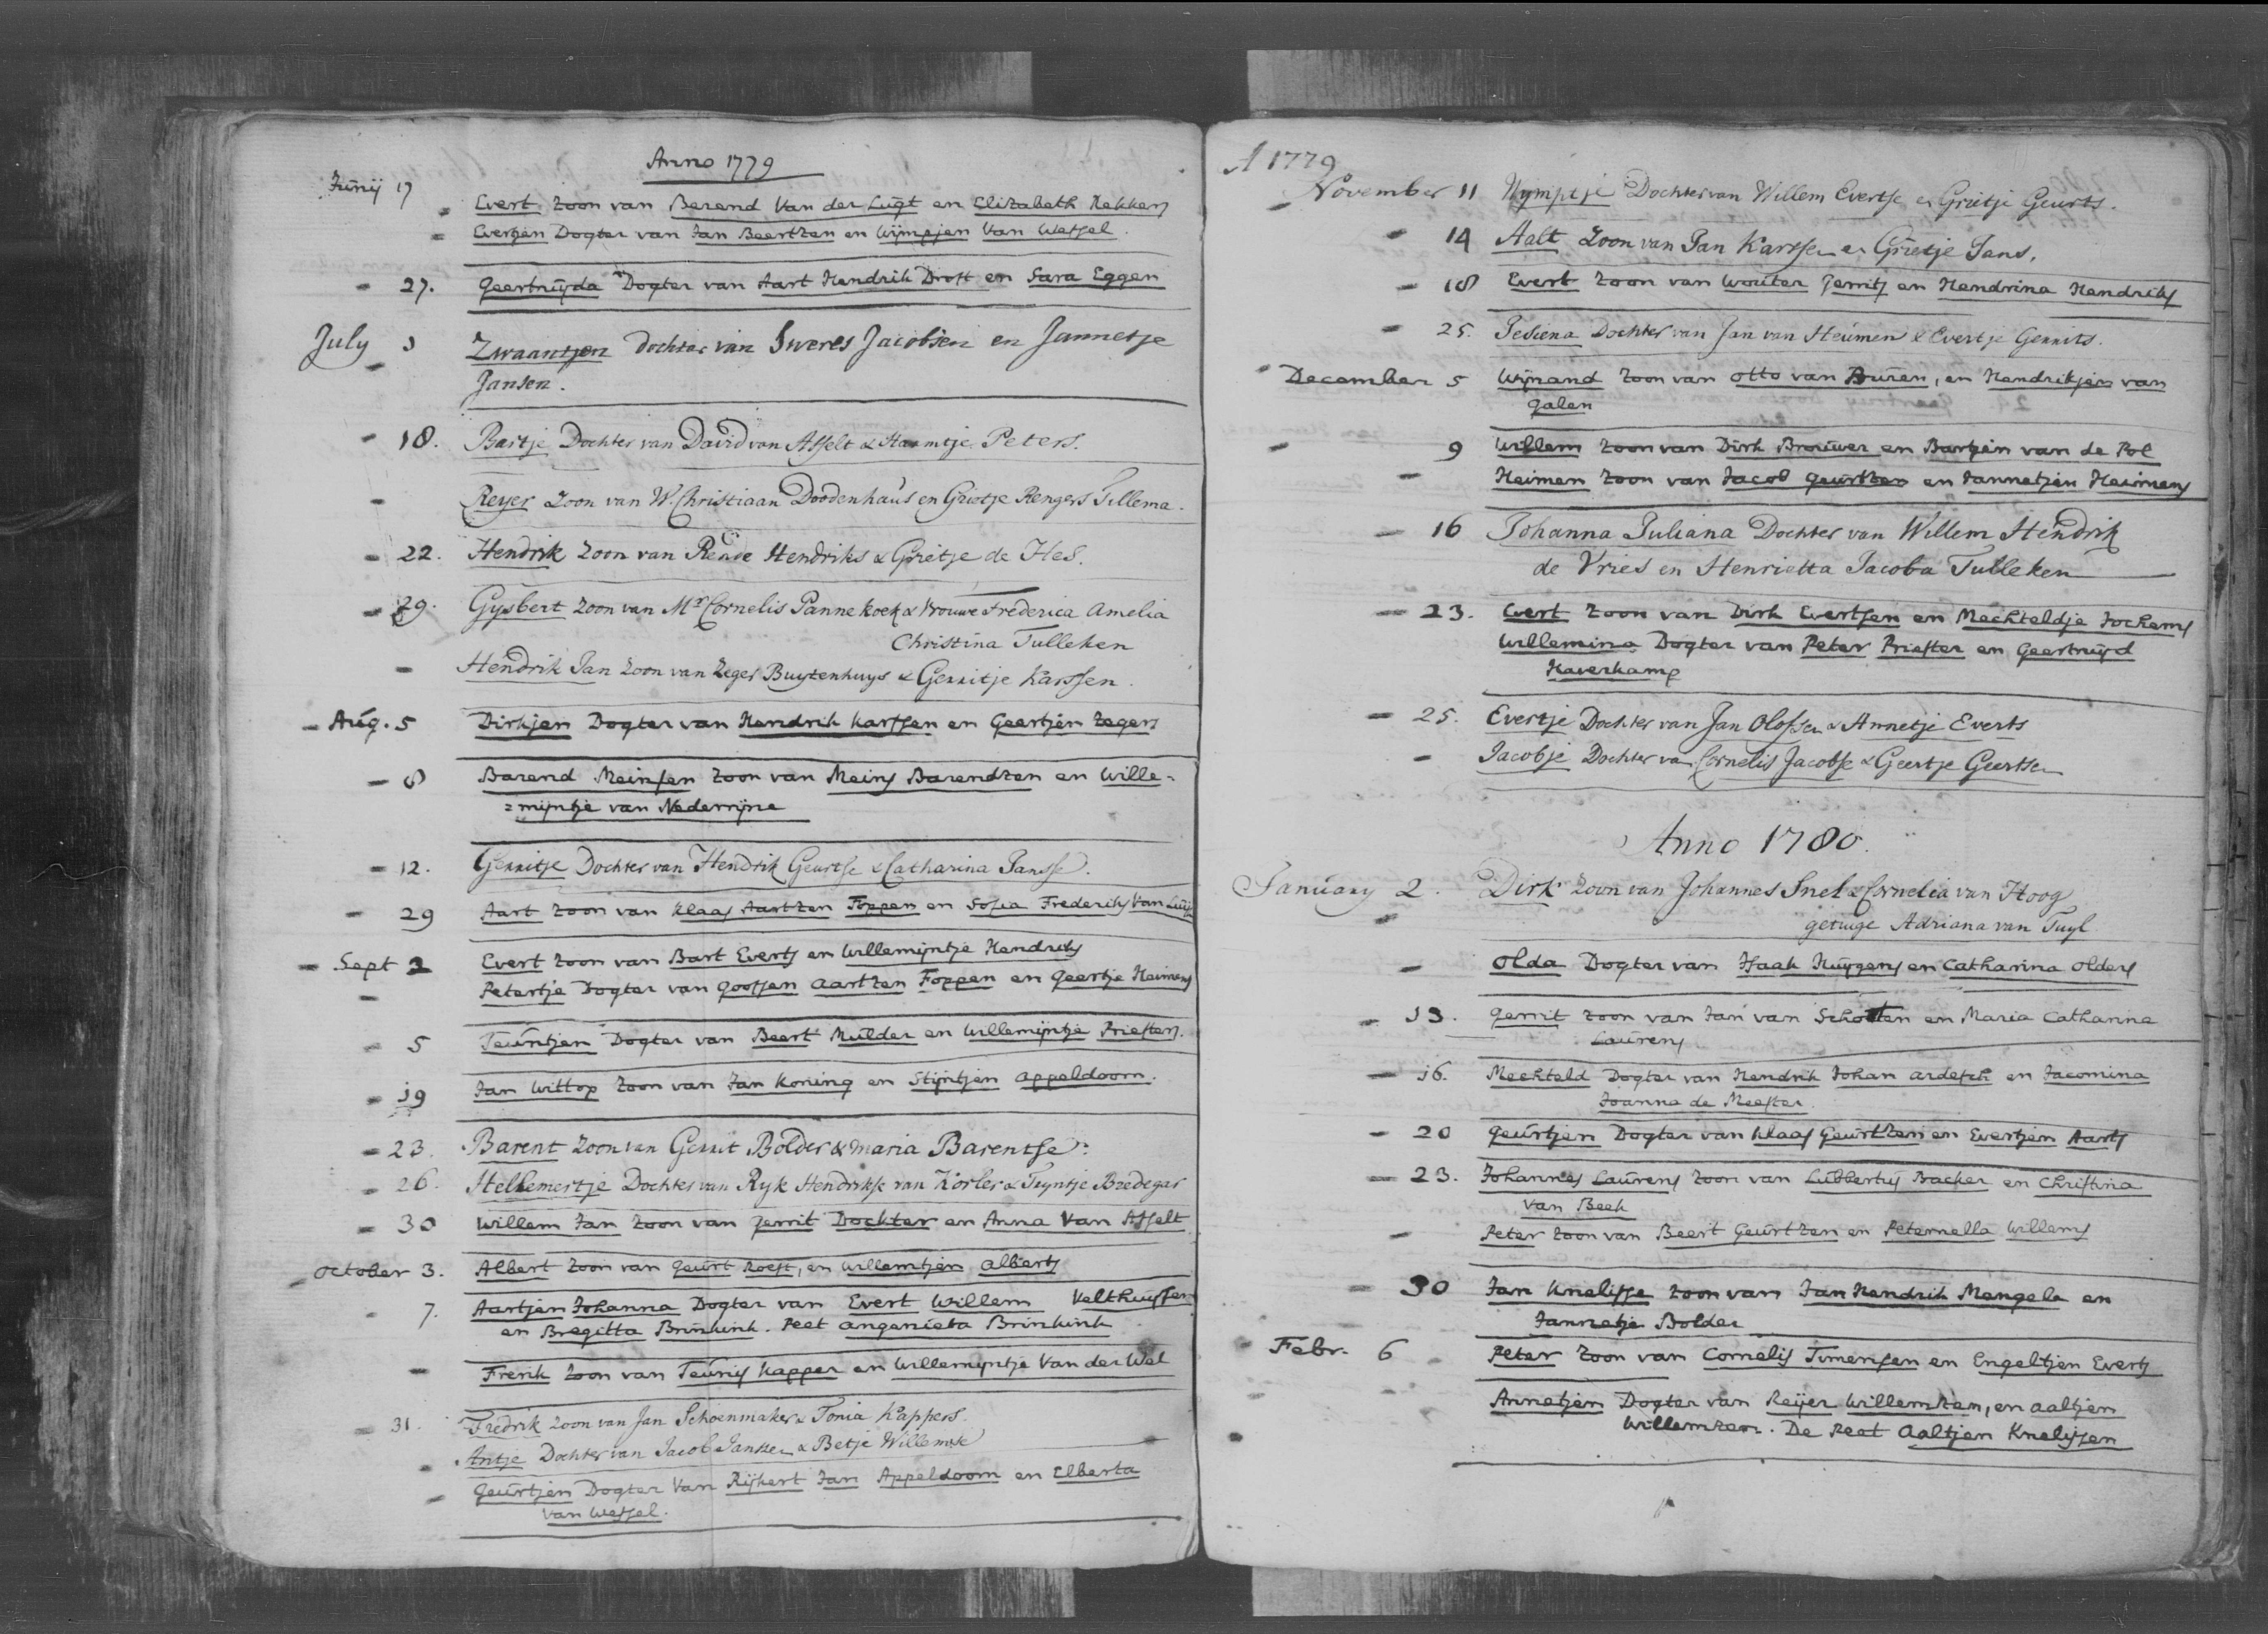 Anno 1779
Junij 17 Evert zoon van Berend Van der Lugt en Elizabeth Rekkers
Evertjen Dogter van Jan Beertzen en Wijmpjen Van Wessel.
27. Geertruijda Dogter van Aart Hendrik Drost en Sara Eggen
July 3 Zwaantjen dochter van Sweres Jacobsen en Jannetje
Jansen.
18. Bartje Dochter van David van Asselt & Harmtje Peters.
Reyer Zoon van W. Christiaan Doodenhaus en Grietje Rengers Tillema.
22. Hendrik Zoon van Rense Hendriks & Grietje de Hes.
29. Gysbert Zoon van Mr Cornelis Pannekoek & Vrouwe Frederica Amelia
Christina Tulleken
Hendrik Jan Zoon van Zeger Buytenhuys & Gerritje Karssen.
Aug. 5 Dirkjen Dogter van Hendrik Karssen en Geertjen Zegers
8 Barend Meinsen zoon van Meins Barendzen en Wille=
=mijntje van Nederrijne
12. Gerritje Dochter van Hendrik Geurtse & Catharina Jansse.
29 Aart zoon van Klaas Aartzen Foppen en Sofia Frederiks Van
Sept 2 Evert zoon van Bart Everts en Willemijntje Hendriks
Petertje Dogter van Goossen Aartzen Foppen en Geertje Heimens
5 Teuntjen Dogter van Beert Mulder en Willemijntje Priesters.
19 Jan Wittop Zoon van Jan Koning en Stijntjen Appeldoorn.
23. Barent Zoon van Gerrit Bolder & Maria Barentse
26. Hellemertje Dochter van Ryk Hendrikse van Korler & Teyntje Bredegar
30 Willem Jan Zoon van Gerrit Dockter en Anna Van Asselt
October 3. Albert zoon van Geurt Roest, en Willemtjen Alberts
7. Aartjen Johanna Dogter van Evert Willem Velthuyssen
en Bregitta Brinkink. Peet Angenieta Brinkink
Frerik zoon van Teunis Kapper en Willemijntje Van der Wal
31. Fredrik zoon van Jan Schoenmaker & Tonia Kappers.
Antje Dochter van Jacob Jansen & Betje Willemse
Geurtjen Dogter Van Rijkert Jan Appeldoorn en Elberta
Van Wessel.
A 1779
November 11 Wymptje Dochter van Willem Evertse en Grietje Geurts.
14 Aalt Zoon van Jan Karssen en Grietje Jans.
18 Evert zoon van Wouter Gerrits en Hendrina Hendriks
25. Gesiena Dochter van Jan van Heumen & Evertje Gerrits.
December 5 Wijnand zoon van Otto van Buren, en Hendrikjen van
Galen
9 Willem zoon van Dirk Brouwer en Bartjen van de Pol
Heimen zoon van Jacob Geurtzen en Jannetjen Heimens
16 Johanna Juliana Dochter van Willem Hendrik
de Vries en Henrietta Jacoba Tulleken
23. Evert zoon van Dirk Evertsen en Mechteldje Jochems
Willemina Dogter van Peter Priester en Geertruijd
Haverkamp
25. Evertje Dochter van Jan Olofsen & Annetje Everts
Jacobje Dochter van Cornelis Jacobse & Geertje Geertsen
Anno 1780.
January 2. Dirk Zoon van Johannes Snel & Cornelia van Hoog
getuige Adriana van Tuyl
Olda Dogter van Isaak Huijgens en Catharina Olders
13. Gerrit zoon van Jan van Schotten en Maria Catharina
Laurens
16. Mechteld Dogter van Hendrik Johan Ardesch en Jacomina
Joanna de Meester.
20 Geurtjen Dogter van Klaas Geurtzen en Evertjen Aarts
23. Johannes Laurens zoon van Lubbertus Backer en Christina
Van Beek
Peter zoon van Beert Geurtzen en Peternella Willems
30 Jan Knelisse zoon van Jan Hendrik Mengele en
Jannetje Bolder
Febr. 6 Peter zoon van Cornelis Timensen en Engeltjen Everts
Annetjen Dogter van Reijer Willemzen, en Aaltjen
Willemzen. De Peet Aaltjen Knelijsen